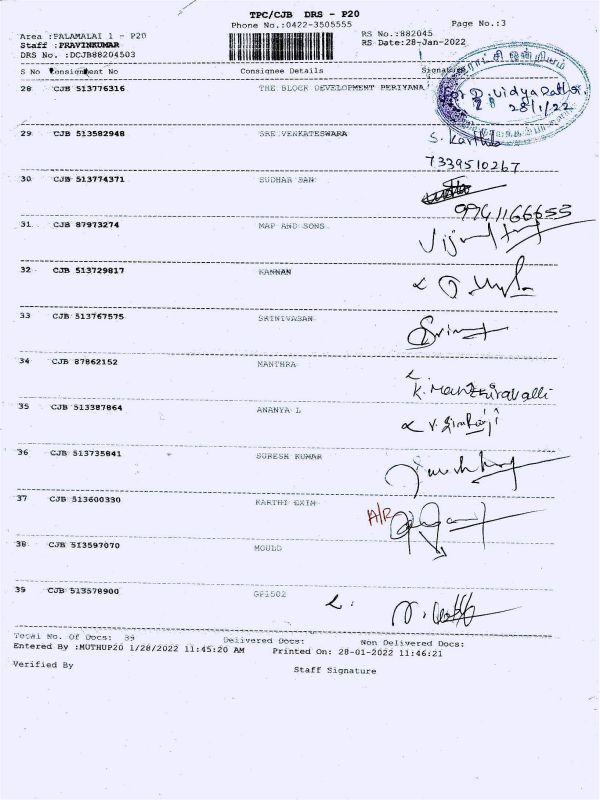 TPC/CJB DRS - P20
Phone No.:0422-3505555 Page No.:3
Area :PALAMALAI 1 - P20 RS No.:882045
Staff :PRAVINKUMAR RS Date:28-Jan-2022
DRS No. :DCJB88204503
S No Consignment No Consignee Details Signature
28 CJB 513776316 THE BLOCK DEVELOPMENT PERIYANA
For D. Vidya
28/1/22
29 CJB 513582948 SRE VENKATESWARA
S. Karthik
7339510267
30 CJB 513774371 SUDHAR SAN
9941166653
31 CJB 87973274 MAP AND SONS
32 CJB 513729817 KANNAN
33 CJB 513767575 SRINIVASAN
34 CJB 87862152 MANTHRA
35 CJB 513387864 ANANYA L
36 CJB 513735841 SURESH KUMAR
37 CJB 513600330 KARTHI EXIM
A/R
38 CJB 513597070 MOULD
39 CJB 513578900 GP1502
Total No. Of Docs: 39 Delivered Docs: Non Delivered Docs:
Entered By :MUTHUP20 1/28/2022 11:45:20 AM Printed On: 28-01-2022 11:46:21
Verified By Staff Signature